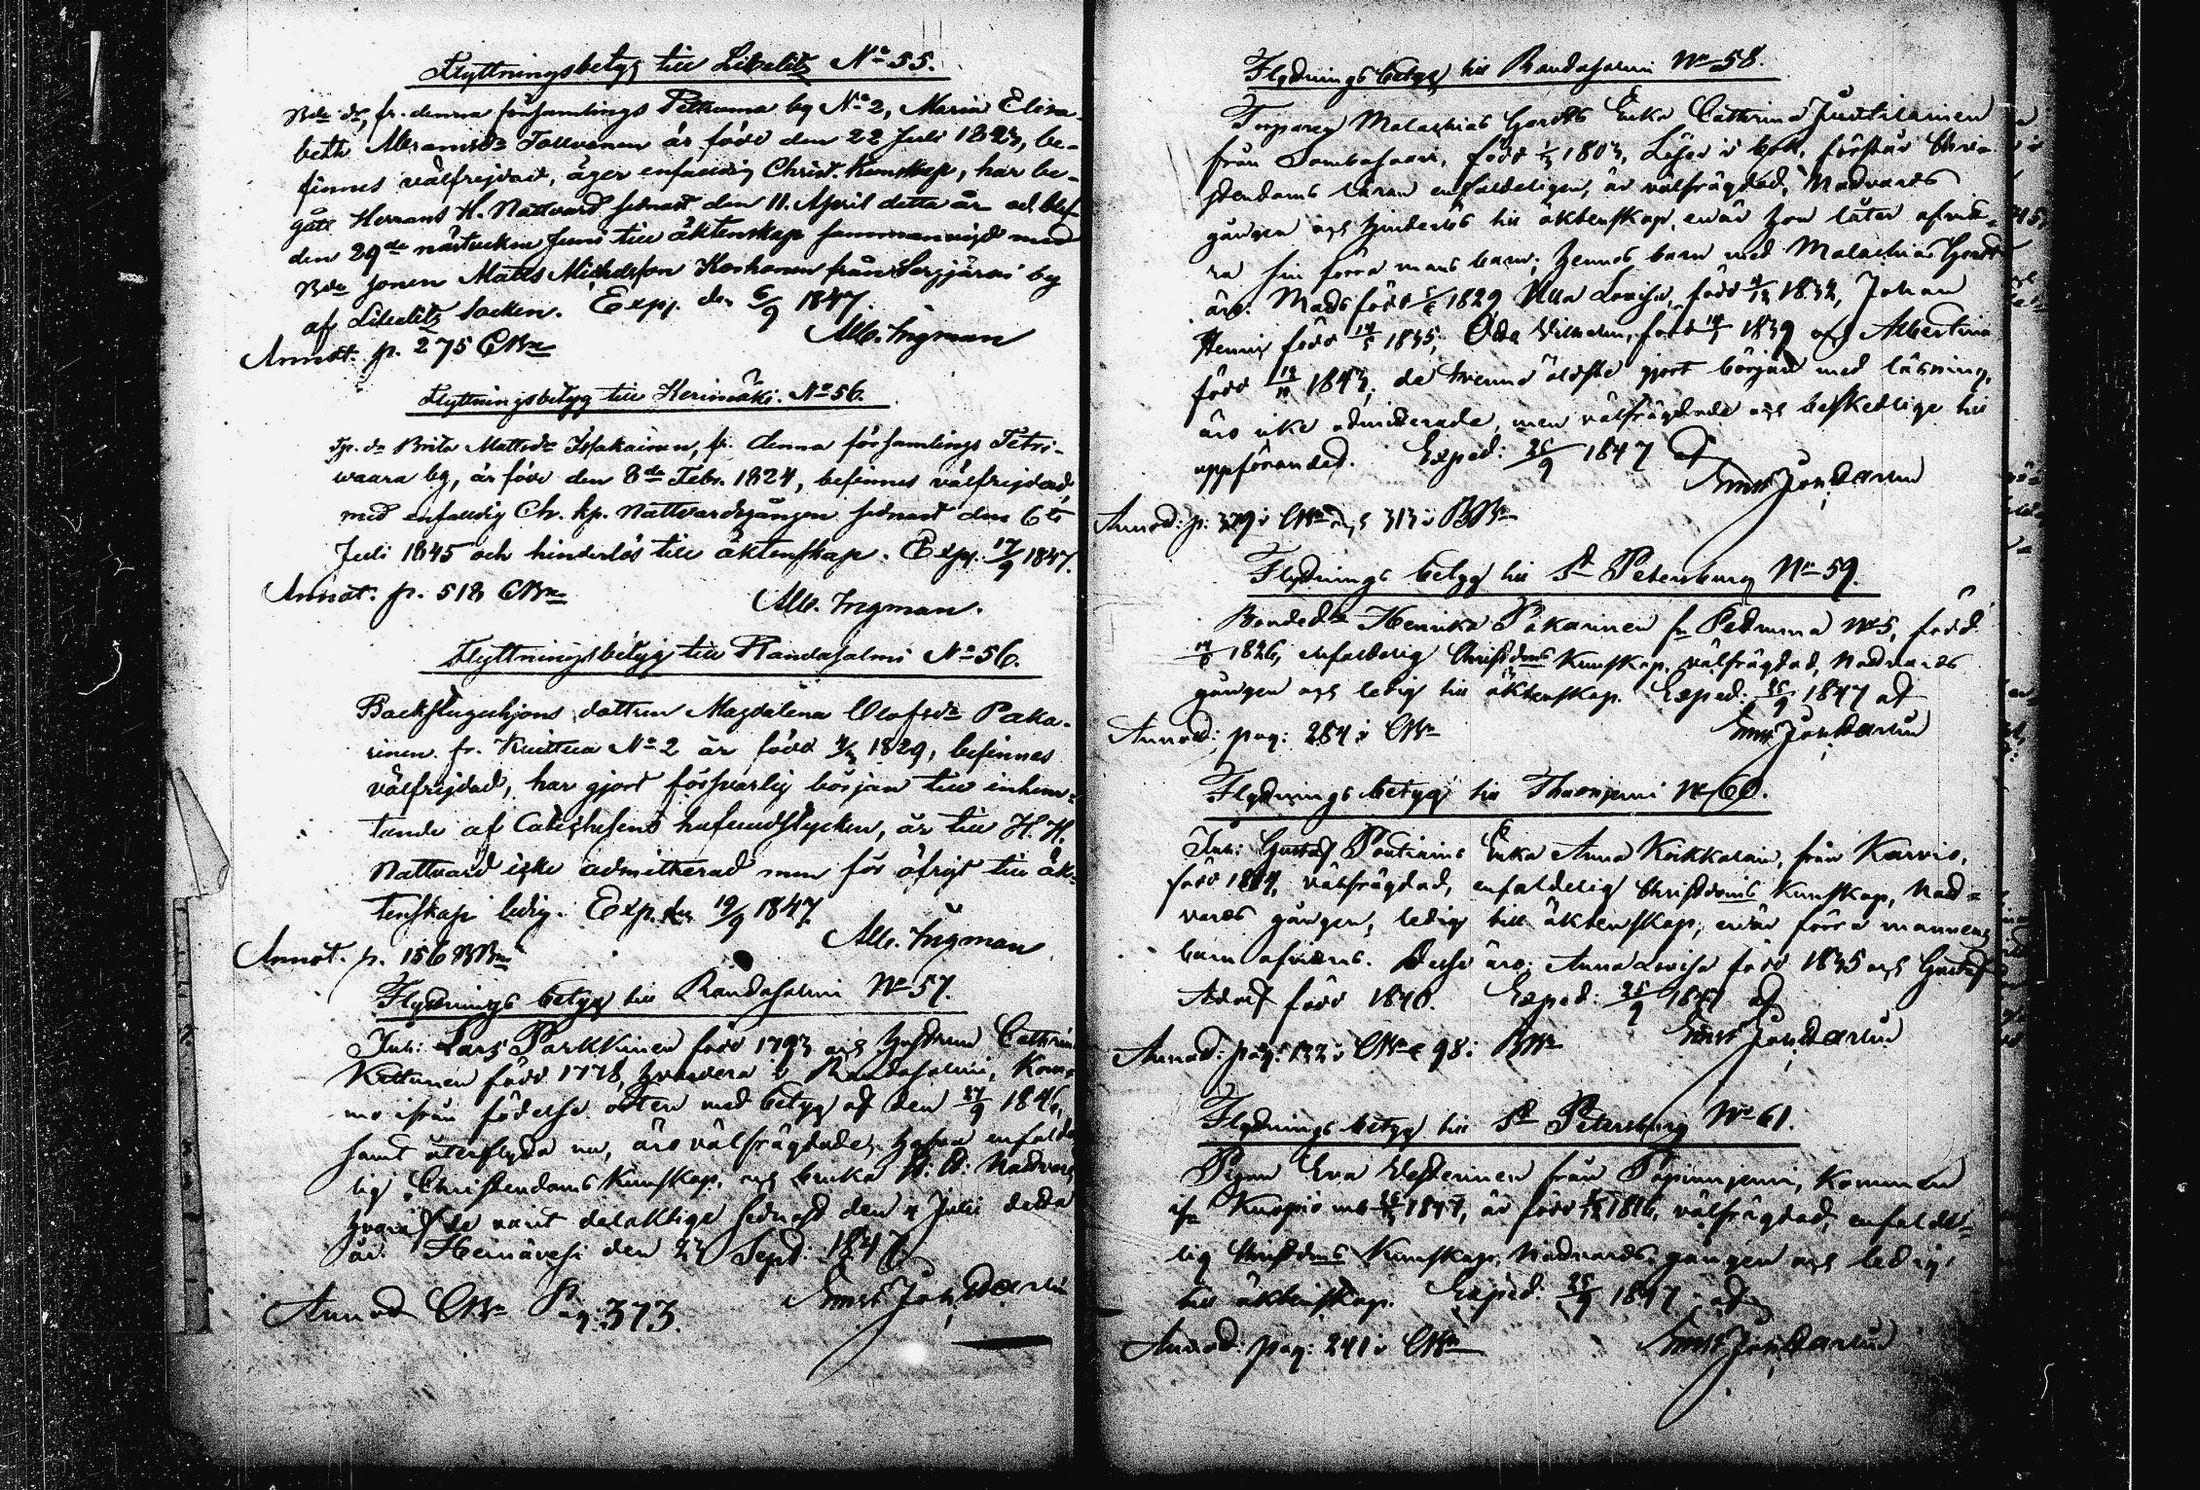 Flyttningsbetyg till Libelitz No 55.
Bde dr, fr. denna församlings Petruma by No 2, Maria Elisa-
beth Abramsdr Tolvanen är född den 22 Juli 1823, be-
finnes välfrejdad, äger enfaldig Christ. Kunskap, har be-
gått Herrans H. Nattvard sednast den 11. April detta år och blef
den 29de nästvekne Juni till äktenskap sammanvigd med
Bde sonen Matts Michelsson Koskonen från Sergjärvi by
af Libelitz Socken. Exp. den 6/9 1847.
Alb. Ingman
Annot. p. 275 CBn
Flyttningsbetyg till Kerimäki. No 56.
Tp. dr Brita Mattsdr fr. denna församlings Petri-
waara by, är född den 8de Febr. 1824, befinnes välfrejdad,
med enfaldig Ch. kp. Nattvardsgången sednast den 6te
Juli 1845 och hinderlös till äktenskap. Exp. 17/9 1847.
Annot. p. 518 CBn
Alb. Ingman.
Flyttningsbetyg till Randasalmi No 56.
Backstuguhjons dottren Magdalena Olofsdr Paka-
rinen fr. No 2 är född 1829, befinnes
välfrejdad, har gjort försvarlig början till inhem-
tande af Catechesens hufvudstycken, är till H. H.
Nattvard icke admitterad men för öfrigt till äk-
tenskap ledig. Exp. den 19/9 1847
Alb. Ingman
Annot. p. 156 BBn
Flyttnings betyg till Randasalmi No 57.
Inh: Lars Parkkinen född 1793 och hustrun Cathrina
Kettunen född 1778, hvardera i Randasalmi, Kom-
mo ifrån födelse orten med betyg af den 27/9 1846,
samt återflytta nu, äro välfrägdade, hafva enfald-
lig Christendoms Kunskap, och bruka H. H. Nattvard
hvaraf de varit delaktige sednast den 4 Julii detta
år. Heinävesi den 23 Sept: 1847.
Annot CBn Pag: 373.
Flyttnings betyg till Randasalmi No 58.
Torparen Malachias Erika Cathrina Juutilainen
från född 1803, Läser i bok, förstår Chri-
stendoms läran enfaldeligen, är välfrägdad, Nattvards
gången och hinderlös till äktenskap, enär hon låtit afvit-
tra sin förra mans barn; hennes barn med Malachias
äro: Mats född 1829 Ulla Lovisa, född 1832, Johan
Henrik född 1835, Vilhelm, född 1839 och Albertina
född 1843, de trenne äldste gjort början med läsning,
äro icke admitterade, men välfrägdade och beskedlige till
uppförandet. Exped: 25/9 1847 af
Annot: p: 379 i CBn och 313 i BBn
Flyttnings betyg till St Petersburg No 59.
Bondedr Henrika Pakarinen fr Petruma No 5, född
1826, enfaldelig Christdoms Kunskap, välfrägdad, Nattvards
gången och ledig till äktenskap. Exped: 25/9 1847 af
Annot: pag: 284 i CBn
Flyttnings betyg till Thusnjemi No 60.
Inh: Gustaf Pontinius Enka Anna från Karvio,
född välfrägdad, enfaldelig Christdoms Kunskap, Natt-
vards gången, ledig till äktenskap, enär förra mannens
barn afvittrats. Desse äro: Anna Lovisa född 1835 och Gustaf
Adolf född 1840. Exped: 25/9 1847 af
Annot: pag: 132 i CBn & 98 i BBn
Flyttnings betyg till St Petersburg No 61.
Pigan Eva Vesterinen från Papinnjemi, Kommen
ifr Kuopio med 1847, är född 1816, välfrägdad, enfalde-
lig Christdoms Kunskap, Nattvards gången och ledig
till äktenskap. Exped: 25/9 1847 af
Annot: pag: 241 i CBn